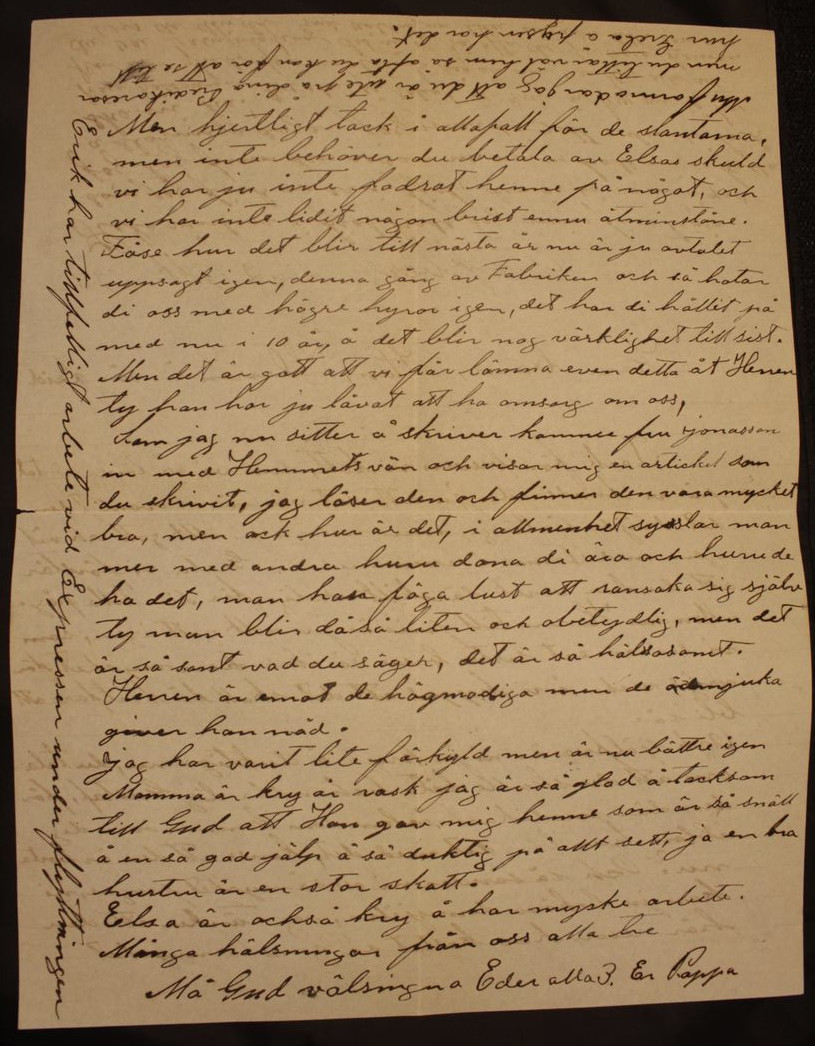 Men hjertligt tack i allafall för de slantarna,
men inte behöver du betala av Elsas skuld
vi har ju inte fodrat henne på något, och
vi har inte lidit någon brist ennu åtminstone.
Fåse hur det blir till nästa år nu är ju avtalet
uppsagt igen, denna gång av Fabriken och så hotar
di oss med högre hyror igen, det har di hållit på
med nu i 10 år, å det blir nog värklighet till sist.
Men det är gott att vi får lämna even detta åt Herren
ty han har ju låvat att ha omsorg om oss,
Som jag nu sitter å skriver kommer fru Jonasson
in med Hemmets vän och visar mig en artickel som
du skrivit, jag läser den och finner den vara mycket
bra, men ack hur är det, i allmenhet sysslar man
mer med andra huru dana di äro och huru de
ha det, man har föga lust att ransaka sig själv
ty man blir då så liten och obetydlig, men det
är så sant vad du säger, det är så hälsosamt.
Herren är emot de högmodiga men de ödmjuka
giver han nåd.
Jag har varit lite förkyld men är nu bättre igen
Mamma är kry är rask jag är så glad å tacksam
till Gud att Han gav mig henne som är så snäll
å en så god jälp å så duktig på allt sett, ja en bra
hustru är en stor skatt.
Elsa är också kry å har myske arbete.
Många hälsningar från oss alla tre
Må Gud välsingna Eder alla 3. Er Pappa
Erik har tillfelligt arbete vid Expressen under flyttningen
Nu förmodar jag att du är ute på dina Predikoresor
men du tittar väl hem så ofta du kan för att se till
hur Greta å pysen har det.